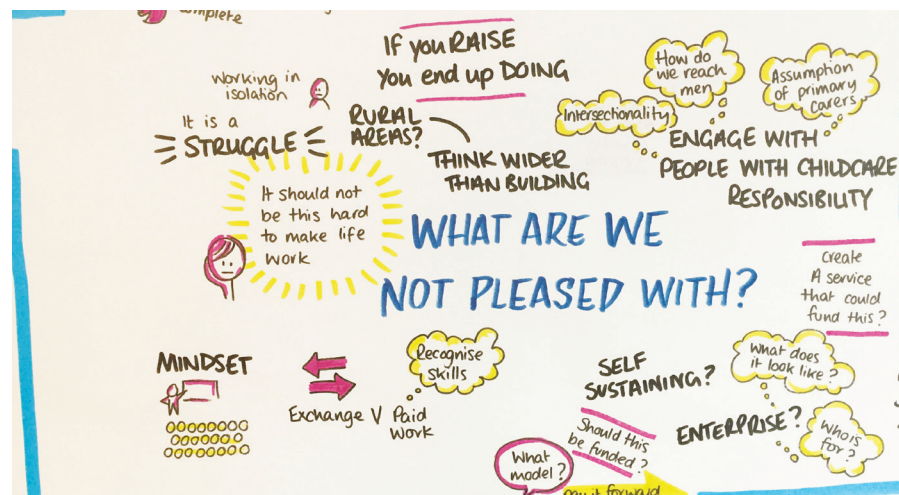 complete
If you RAISE
you end up DOING
Working in
isolation
It is a
STRUGGLE
RURAL
AREAS?
THINK WIDER
THAN BUILDING
Intersectionality
How do
we reach
men
Assumption
of primary
carers
ENGAGE WITH
PEOPLE WITH CHILDCARE
RESPONSIBILITY
It should not
be this hard
to make life
work
WHAT ARE WE
NOT PLEASED WITH?
Create
A service
that could
fund this?
MINDSET
Exchange V Paid
Work
Recognise
skills
SELF
SUSTAINING?
What does
it look like?
ENTERPRISE?
Who is
for?
Should this
be funded?
What
model?
pay it forward